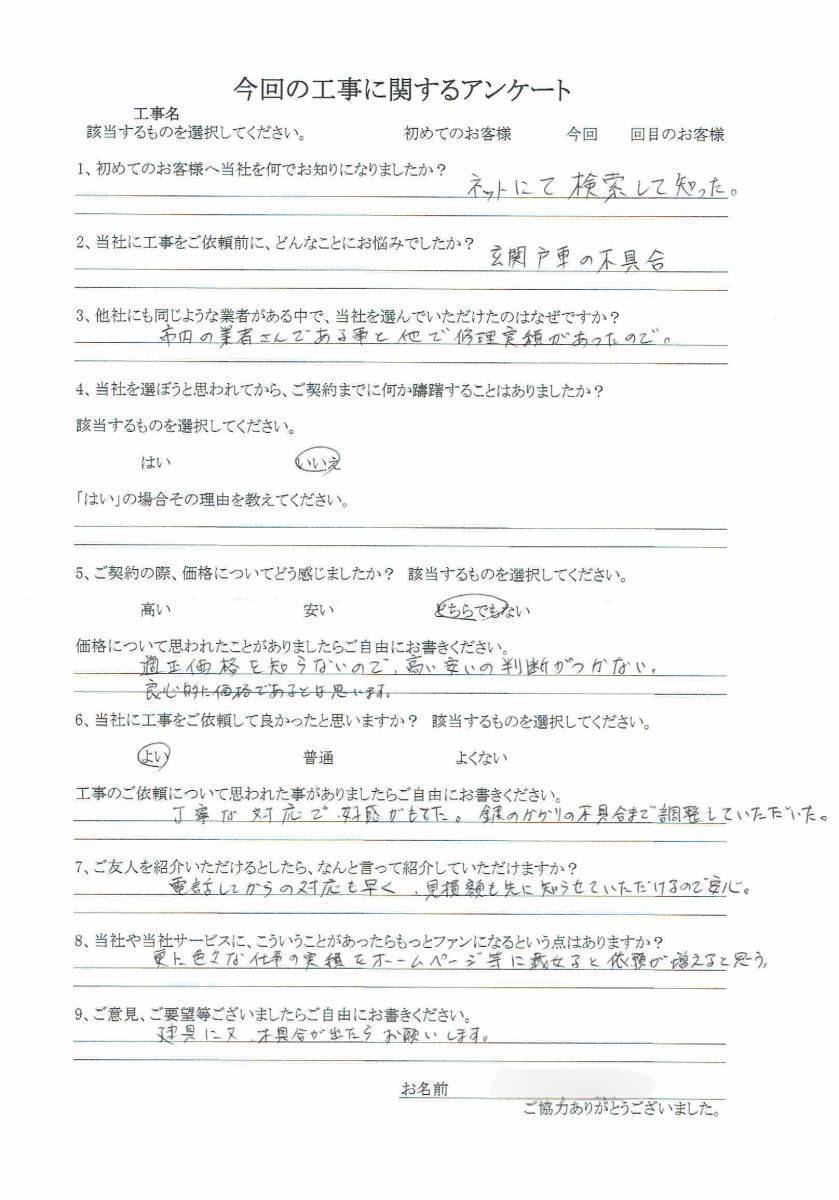 今回の工事に関するアンケート
工事名
該当するものを選択してください。 初めてのお客様 今回 回目のお客様
1、初めてのお客様へ当社を何でお知りになりましたか？
ネットにて検索して知った。
2、当社に工事をご依頼前に、どんなことにお悩みでしたか？
玄関戸車の不具合
3、他社にも同じような業者がある中で、当社を選んでいただけたのはなぜですか？
市内の業者さんである事と他で修理実績があったので。
4、当社を選ぼうと思われてから、ご契約までに何か躊躇することはありましたか？
該当するものを選択してください。
はい いいえ
「はい」の場合その理由を教えてください。
5、ご契約の際、価格についてどう感じましたか？ 該当するものを選択してください。
高い 安い どちらでもない
価格について思われたことがありましたらご自由にお書きください。
適正価格を知らないので、高い安いの判断がつかない。
良心的に価格であるとは思います。
6、当社に工事をご依頼して良かったと思いますか？ 該当するものを選択してください。
よい 普通 よくない
工事のご依頼について思われた事がありましたらご自由にお書きください。
丁寧な対応で好感がもてた。鍵のかかりの不具合まで調整していただいた。
7、ご友人を紹介いただけるとしたら、なんと言って紹介していただけますか？
電話してからの対応も早く、見積額も先に知らせていただけるので安心。
8、当社や当社サービスに、こういうことがあったらもっとファンになるという点はありますか？
更に色々な仕事の実績をホームページ等に載せると依頼が増えると思う。
9、ご意見、ご要望等ございましたらご自由にお書きください。
建具に又、不具合が出たらお願いします。
お名前
ご協力ありがとうございました。